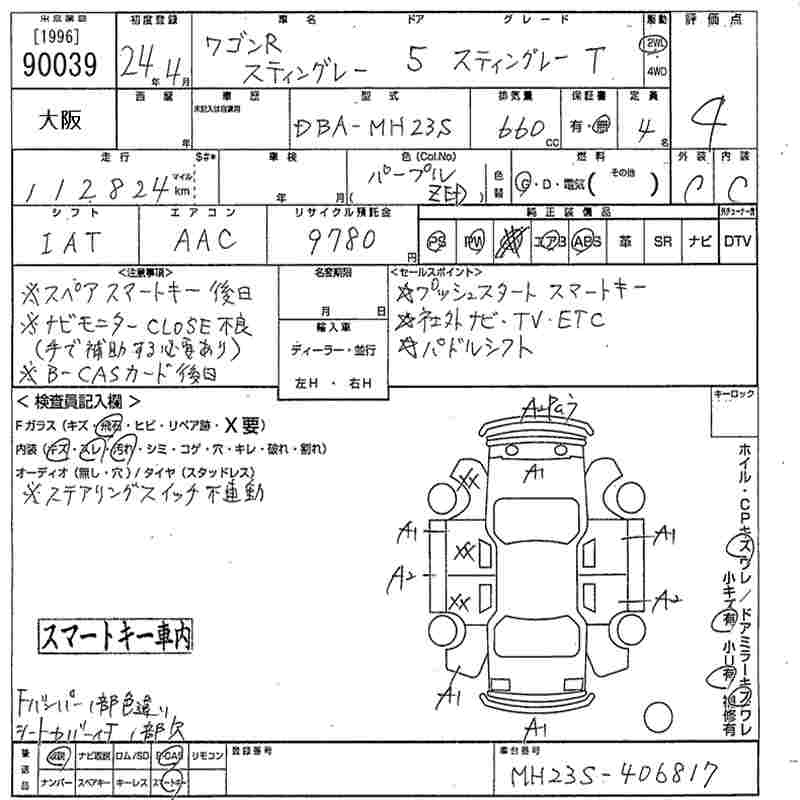 東京業販
[1996]
90039
大阪
初度登録
24年 4月
車名
ワゴンR
スティングレー
ドア
5
グレード
スティングレー T
駆動
2WD
4WD
評価点
4
西暦
年
車歴
未記入は自家用
型式
DBA-MH23S
排気量
660
CC
保証書
有・無
定員
4名
走行
$#*
112824
マイル
km
車検
年 月
色 (Col.No)
パープル
( ZED )
色替
燃料
G・D・電気 ( その他 )
外装
C
内装
C
シフト
IAT
エアコン
AAC
リサイクル預託金
9780
円
純正装備品
PS PW エアB ABS 革 SR ナビ DTV
<注意事項>
※スペアスマートキー後日
※ナビモニターCLOSE不良
(手で補助する必要あり)
※B-CASカード後日
名変期限
月 日
輸入車
ディーラー・並行
左H ・ 右H
<セールスポイント>
☆プッシュスタート スマートキー
☆社外ナビ・TV・ETC
☆パドルシフト
キーロック
< 検査員記入欄 >
Fガラス (キズ・飛石・ヒビ・リペア跡・X要)
内装 (キズ・スレ・汚れ・シミ・コゲ・穴・キレ・破れ・割れ)
オーディオ (無し・穴) / タイヤ (スタッドレス)
※ステアリングスイッチ不運動
A1
XX
A1
XX
A1
A2
XX
A2
A1
A1
ホイル・CPキズワレ/ドアミラーキズワレ
小キズ有 小U有 補修有
スマートキー車内
Fバンパー1部色違い
シートカバー付 1部欠
後送品
取説 ナビ取説 ロム/SD B-CAS リモコン
ナンバー スペアキー キーレス スマートキー
登録番号
車台番号
MH23S-406817